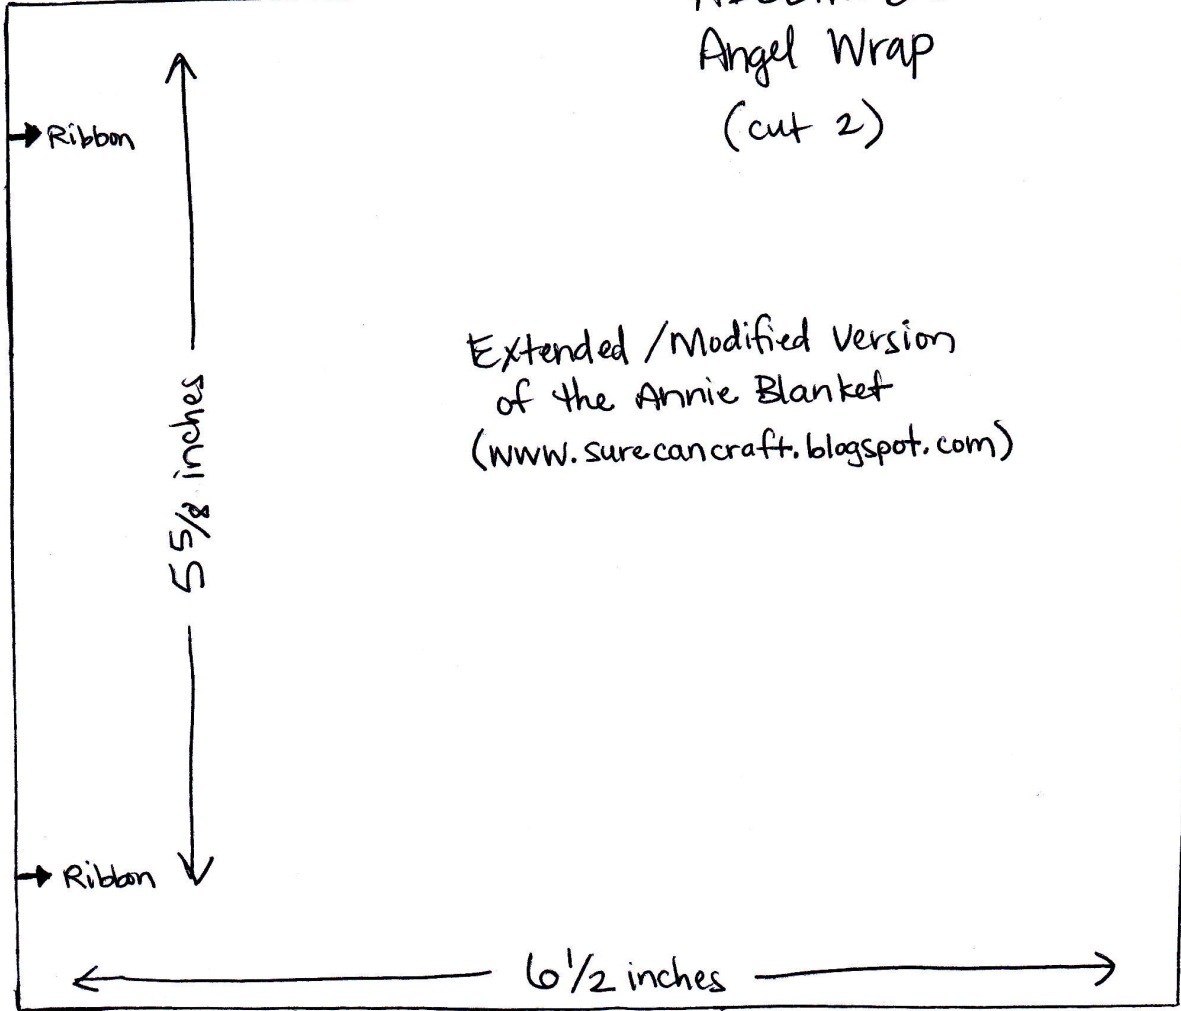 Angel Wrap
(cut 2)
Ribbon
5 5/8 inches
Extended/Modified Version
of the Annie Blanket
(www.surecancraft.blogspot.com)
Ribbon
6 1/2 inches